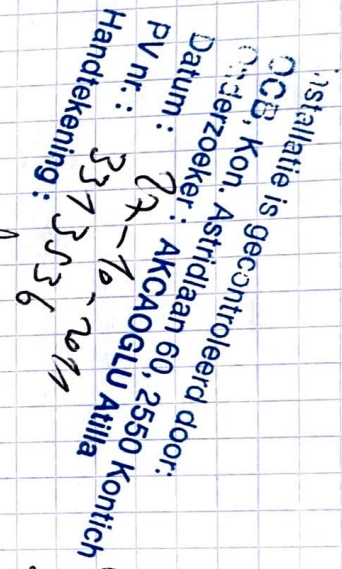 Installatie is gecontroleerd door:
OCB, Kon. Astridlaan 60, 2550 Kontich
Onderzoeker: AKCAOGLU Atilla
Datum: 27-10-2011
PV nr.: 3313536
Handtekening: